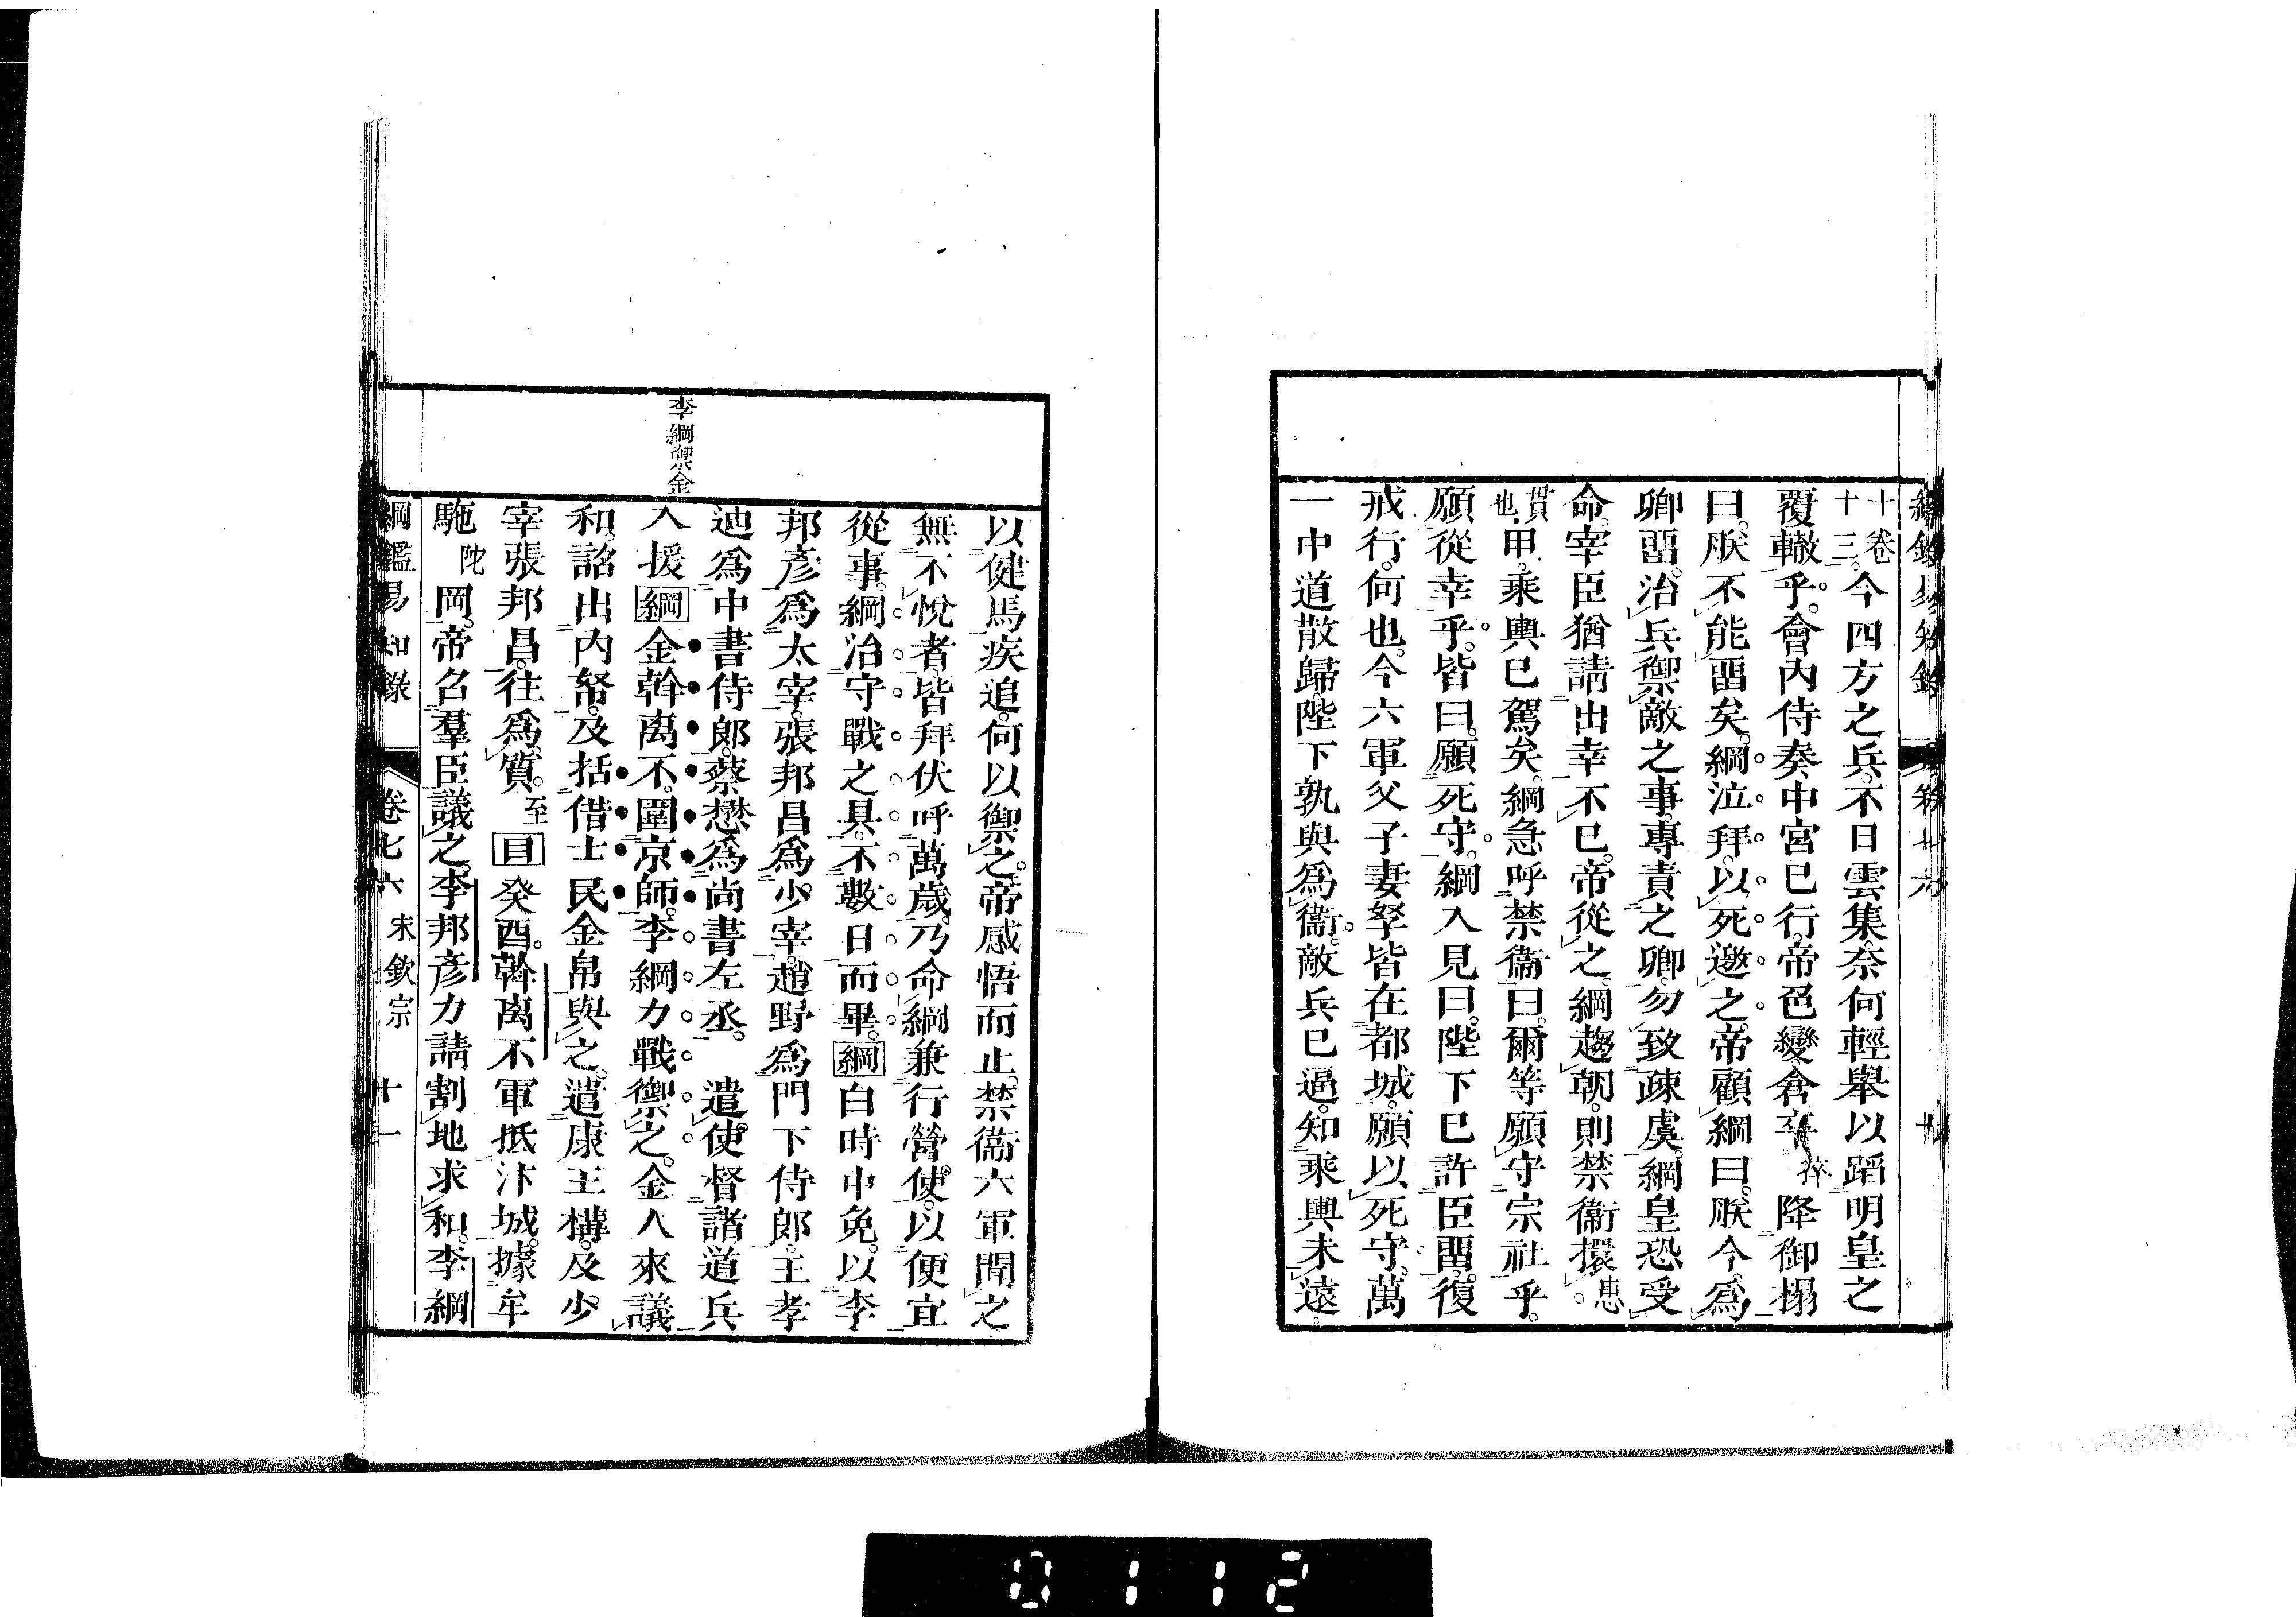 十卷十三。今四方之兵。不日雲集。奈何輕舉以蹈明皇之
覆轍乎。會內侍奏中宮已行。帝色變。倉卒猝降御榻
曰。朕不能畱矣。綱泣拜。以死邀之。帝顧綱曰。朕今爲
卿畱。治兵禦敵之事。專責之卿。勿致疎虞。綱皇恐受
命。宰臣猶請出幸不已。帝從之。綱趨朝。則禁衞擐患
貫也。甲。乘輿已駕矣。綱急呼禁衞曰。爾等願守宗社乎。
願從幸乎。皆曰。願死守。綱入見曰。陛下已許臣畱。復
戒行。何也。今六軍父子妻孥皆在都城。願以死守。萬
一中道散歸。陛下孰與爲衞。敵兵已逼。知乘輿未遠。
以健馬疾追。何以禦之。帝感悟而止。禁衞六軍聞之
無不悅者。皆拜伏呼萬歲。乃命綱兼行營使。以便宜
從事。綱治守戰之具。不數日而畢。綱白時中免。以李
邦彥爲太宰。張邦昌爲少宰。趙野爲門下侍郎。王孝
迪爲中書侍郎。蔡懋爲尚書左丞。 遣使督諸道兵
李綱禦金
入援綱金斡离不。圍京師。李綱力戰禦之。金人來議
和。詔出內帑。及括借士民金帛與之。遣康王構。及少
宰張邦昌。往爲質。至目癸酉。斡离不軍抵汴城。據牟
駞陀岡。帝召羣臣議之。李邦彥力請割地求和。李綱
綱鑑易知錄 卷七六 宋欽宗 十一
0112